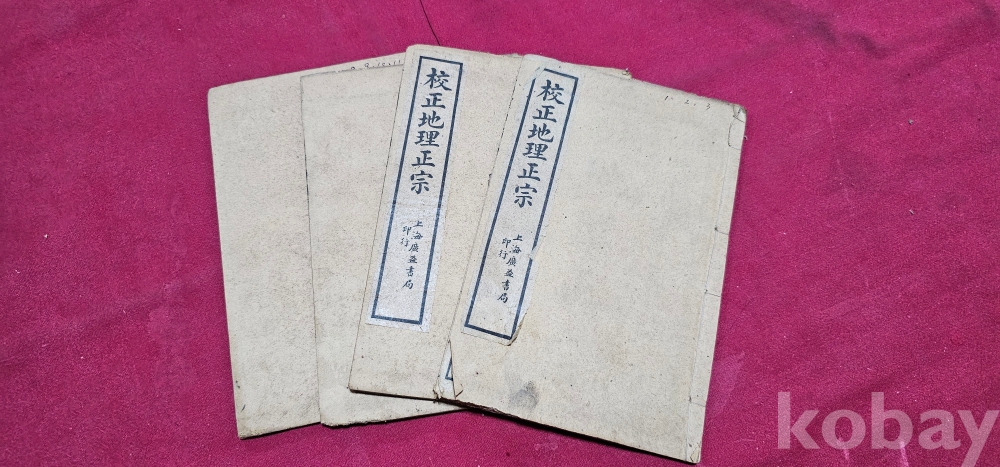 校正地理正宗
上海廣益書局
印行
校正地理正宗
上海廣益書局
印行
9.10.11
1. 2. 3
kobay